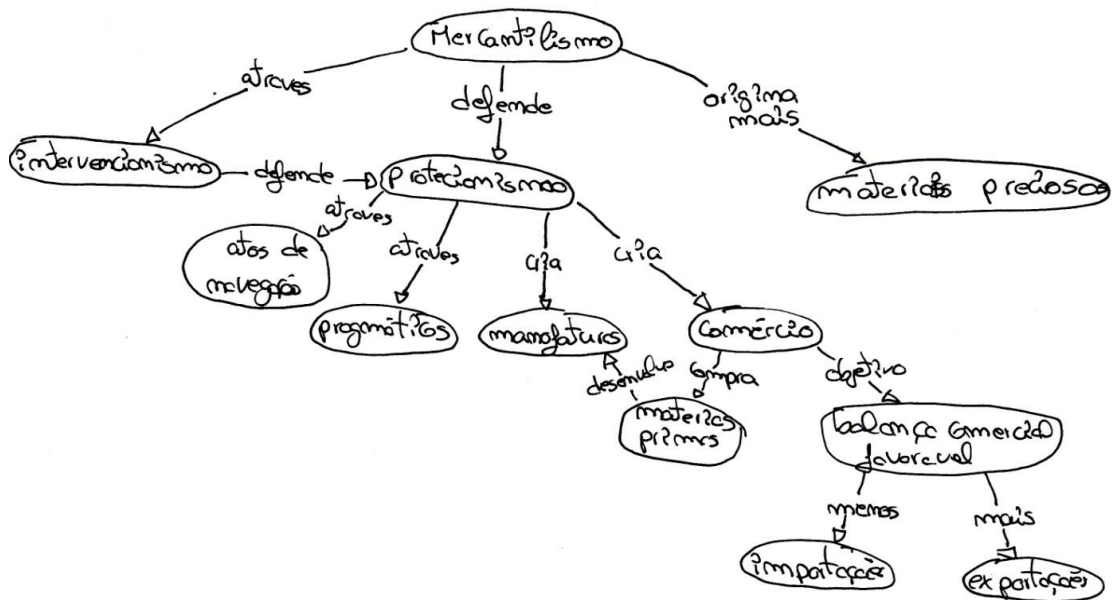 Mercantilismo
atraves
defende
origina
mais
intervencionismo
defende
protecionismo
materiais preciosos
atraves
atos de
navegação
atraves
cria
cria
pragmáticas
manofaturas
comércio
desenvolve
compra
objetivo
materias
primas
balança comercial
favoravel
menos
mais
importações
exportações